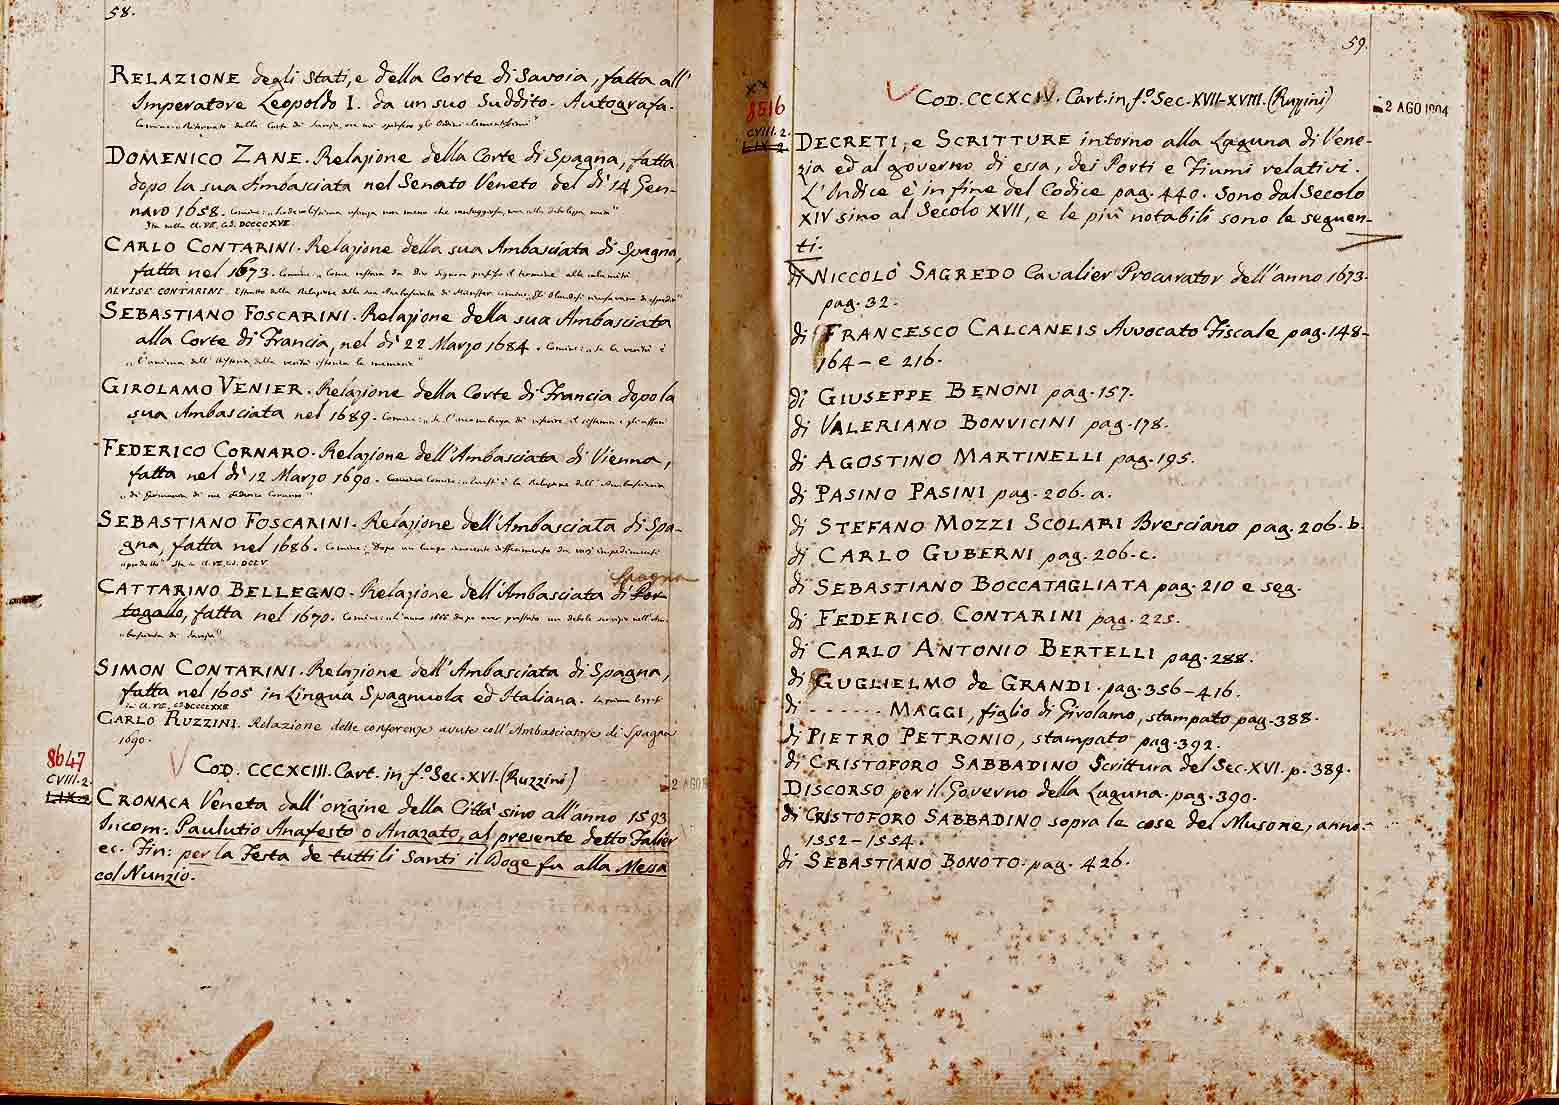 58.
RELAZIONE degli Stati, e della Corte di Savoia, fatta all'
Imperatore Leopoldo I. da un suo Suddito. Autografa.
DOMENICO ZANE. Relazione della Corte di Spagna, fatta
dopo la sua Ambasciata nel Senato Veneto del dì 14 Gen-
naro 1658.
Sta nella Cl. VII. Cod. DCCCCXVII
CARLO CONTARINI. Relazione della sua Ambasciata di Spagna,
fatta nel 1673.
ALVISE CONTARINI. Estratto della Relazione della sua Ambasciata di Münster
SEBASTIANO FOSCARINI. Relazione della sua Ambasciata
alla Corte di Francia, nel dì 22 Marzo 1684. Cominc: „Se la verità è
„l'anima dell'Historia
GIROLAMO VENIER. Relazione della Corte di Francia dopo la
sua Ambasciata nel 1689.
FEDERICO CORNARO. Relazione dell'Ambasciata di Vienna,
fatta nel dì 12 Marzo 1690. Relazione dell'Ambasciaria
„di Germania di me Federico Cornaro"
SEBASTIANO FOSCARINI. Relazione dell'Ambasciata di Spa-
gna, fatta nel 1686. Cominc: „Dopo un lungo impedimenti
Spagna
CATTARINO BELLEGNO. Relazione dell'Ambasciata di Por-
togallo, fatta nel 1670.
SIMON CONTARINI. Relazione dell'Ambasciata di Spagna,
fatta nel 1605 in Lingua Spagnuola ed Italiana.
CARLO RUZZINI. Relazione delle conferenze avute coll'Ambasciatore di Spagna
1690.
8647
CVIII.2.
LIX.2
COD. CCCXCIII. Cart. in f.º Sec. XVI. (Ruzzini)
2 AGO
CRONACA Veneta dall'origine della Città sino all'anno 1593
Incom: Paulutio Anafesto o Anazato, al presente detto Falier
ec. Fin: per la Festa de tutti li Santi il Doge fu alla Messa
col Nunzio.
59.
XX
8516
CVIII.2.
LIX.2
COD. CCCXCIV. Cart. in f.º Sec. XVII-XVIII. (Ruzzini)
2 AGO 1904
DECRETI, e SCRITTURE intorno alla Laguna di Vene-
zia ed al governo di essa, dei Porti e Fiumi relativi.
L'Indice è in fine del Codice pag. 440. Sono dal Secolo
XIV sino al Secolo XVII, e le più notabili sono le seguen-
ti.
di NICCOLÒ SAGREDO Cavalier Procurator dell'anno 1673-
pag. 32.
di FRANCESCO CALCANEIS Avvocato Fiscale pag. 148-
164 - e 216.
di GIUSEPPE BENONI pag. 157.
di VALERIANO BONVICINI pag. 178.
di AGOSTINO MARTINELLI pag. 195.
di PASINO PASINI pag. 206. a.
di STEFANO MOZZI SCOLARI Bresciano pag. 206. b.
di CARLO GUBERNI pag. 206. c.
di SEBASTIANO BOCCATAGLIATA pag. 210 e seg.
di FEDERICO CONTARINI pag. 225.
di CARLO ANTONIO BERTELLI pag. 288.
di GUGLIELMO de GRANDI. pag. 356-416.
di - - - - - - - MAGGI, figlio di Girolamo, stampato pag. 388.
di PIETRO PETRONIO, stampato pag. 392.
di CRISTOFORO SABBADINO Scrittura del Sec. XVI. p. 389.
DISCORSO per il Governo della Laguna. pag. 390.
di CRISTOFORO SABBADINO sopra le cose del Musone, anno
1552-1554.
di SEBASTIANO BONOTO. pag. 426.